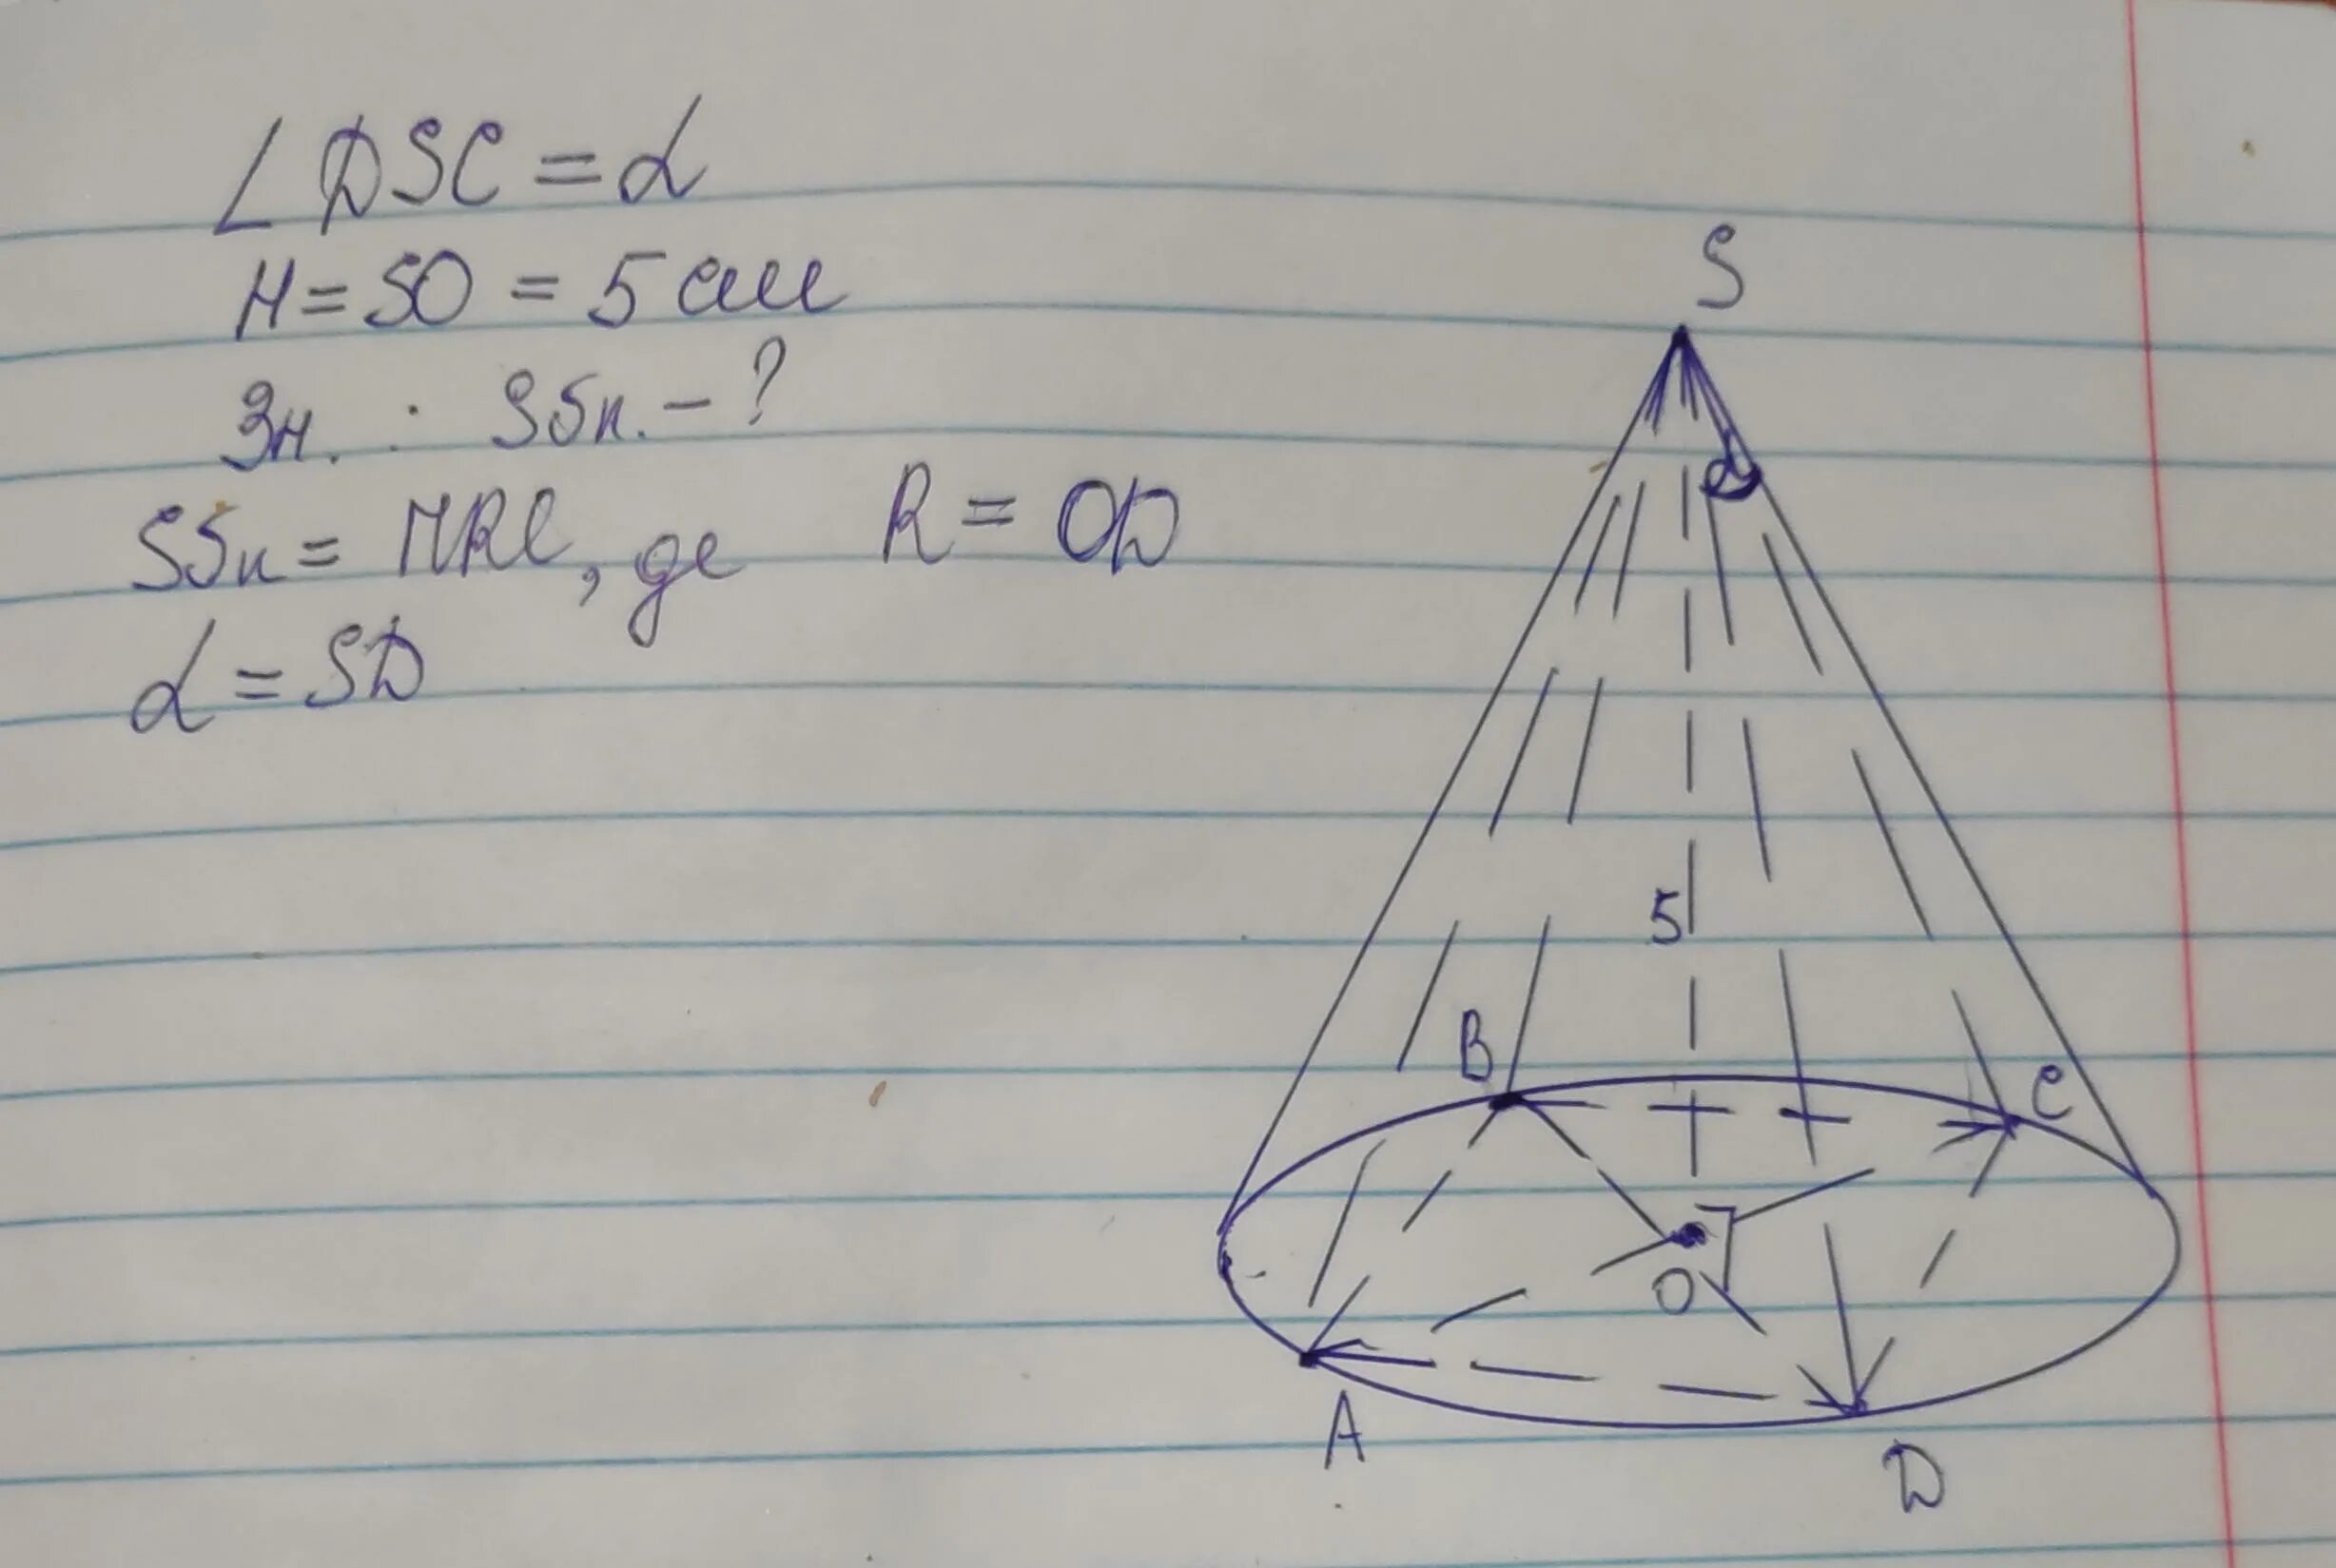 ∠DSC = α
H = SO = 5 см
Зн. : Sбп. - ?
Sбп = πRl, де R = OD
L = SD
S
α
5
B
C
O
A
D